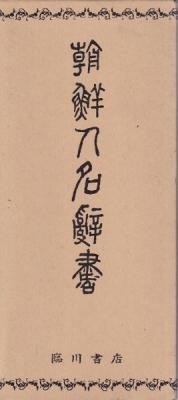 朝鮮人名辭書
臨川書店